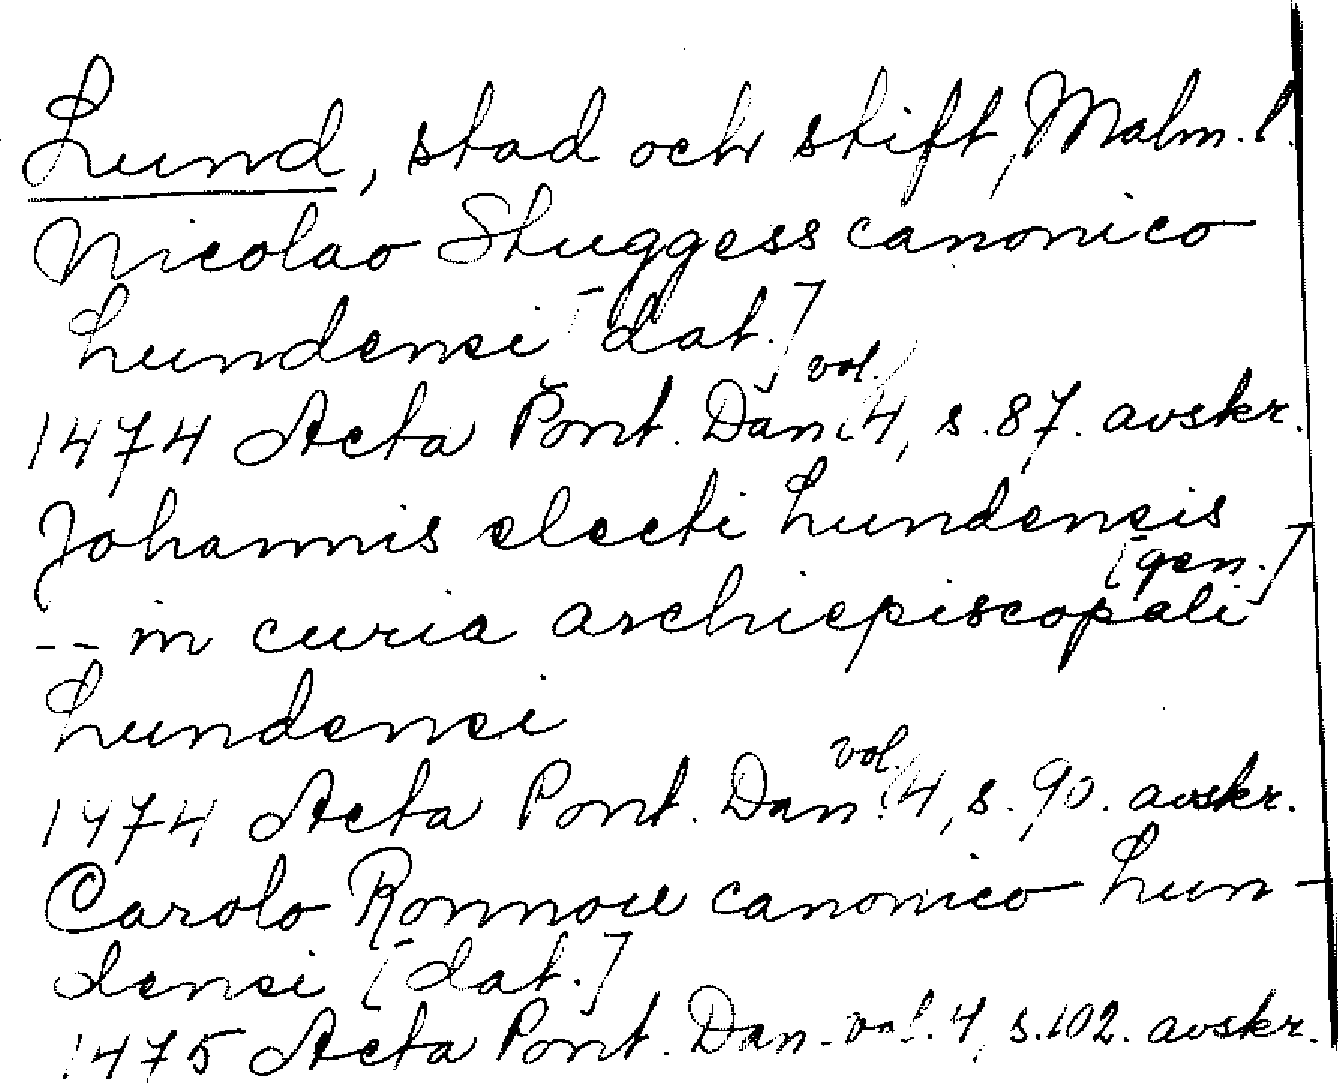 Lund, stad och stift, Malm. l.
Nicolao Stuggess canonico
Lundensi [dat.]
1474 Acta Pont. Dan. vol. 4, s. 87. avskr.
Johannis electi Lundensis
[gen.]
-- in curia archiepiscopali
Lundensi
1474 Acta Pont. Dan. vol. 4, s. 90. avskr.
Carolo Ronnow canonico Lun-
densi [dat.]
1475 Acta Pont. Dan. vol. 4, s. 102. avskr.